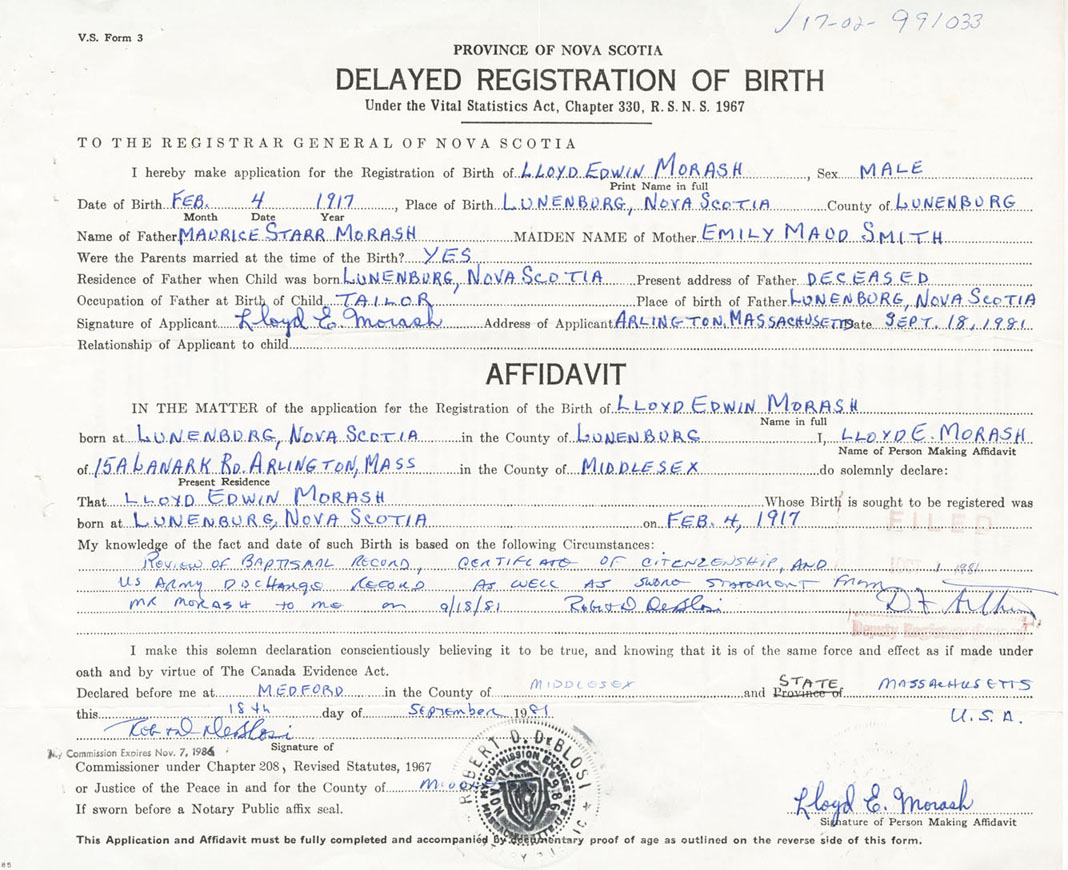 17-02-991033
V.S. Form 3
PROVINCE OF NOVA SCOTIA
DELAYED REGISTRATION OF BIRTH
Under the Vital Statistics Act, Chapter 330, R.S.N.S. 1967
TO THE REGISTRAR GENERAL OF NOVA SCOTIA
I hereby make application for the Registration of Birth of LLOYD EDWIN MORASH, Sex MALE
Print Name in full
Date of Birth FEB. 4 1917, Place of Birth LUNENBURG, NOVA SCOTIA County of LUNENBURG
Month Date Year
Name of Father MAURICE STARR MORASH MAIDEN NAME of Mother EMILY MAUD SMITH
Were the Parents married at the time of the Birth? YES
Residence of Father when Child was born LUNENBURG, NOVA SCOTIA Present address of Father DECEASED
Occupation of Father at Birth of Child TAILOR Place of birth of Father LUNENBURG, NOVA SCOTIA
Signature of Applicant Lloyd E. Morash Address of Applicant ARLINGTON, MASSACHUSETTS Date SEPT. 18, 1981
Relationship of Applicant to child
AFFIDAVIT
IN THE MATTER of the application for the Registration of the Birth of LLOYD EDWIN MORASH
Name in full
born at LUNENBURG, NOVA SCOTIA in the County of LUNENBURG I, LLOYD E. MORASH
Name of Person Making Affidavit
of 15A LANARK RD. ARLINGTON, MASS in the County of MIDDLESEX do solemnly declare:
Present Residence
That LLOYD EDWIN MORASH Whose Birth is sought to be registered was
born at LUNENBURG, NOVA SCOTIA on FEB. 4, 1917
FILED
My knowledge of the fact and date of such Birth is based on the following Circumstances:
REVIEW OF BAPTISMAL RECORD, CERTIFICATE OF CITENZENSHIP, AND
1 1981
US ARMY DISCHANGE RECORD AS WELL AS SWORN STATEMENT FROM
MR MORASH to me on 9/18/81 Robert D DeBlosi
Deputy Registrar
I make this solemn declaration conscientiously believing it to be true, and knowing that it is of the same force and effect as if made under
oath and by virtue of The Canada Evidence Act.
Declared before me at MEDFORD in the County of MIDDLESEX and Province of STATE MASSACHUSETTS
this 18th day of SEPTEMBER 1981 U.S.A.
Robert D DeBlosi
Signature of
My Commission Expires Nov. 7, 1986
Commissioner under Chapter 208, Revised Statutes, 1967
or Justice of the Peace in and for the County of
If sworn before a Notary Public affix seal.
ROBERT D. DEBLOSI
MY COMMISSION EXPIRES
NOV 7 1986
Lloyd E. Morash
Signature of Person Making Affidavit
This Application and Affidavit must be fully completed and accompanied by documentary proof of age as outlined on the reverse side of this form.
85